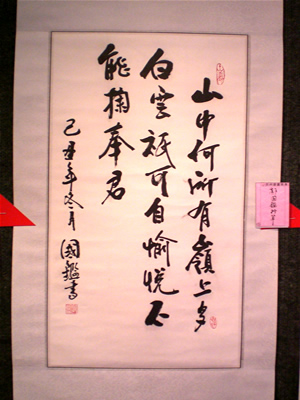 山中何所有嶺上多
白雲祇可自愉悅不
能掬奉君
己丑年冬月國鑑書